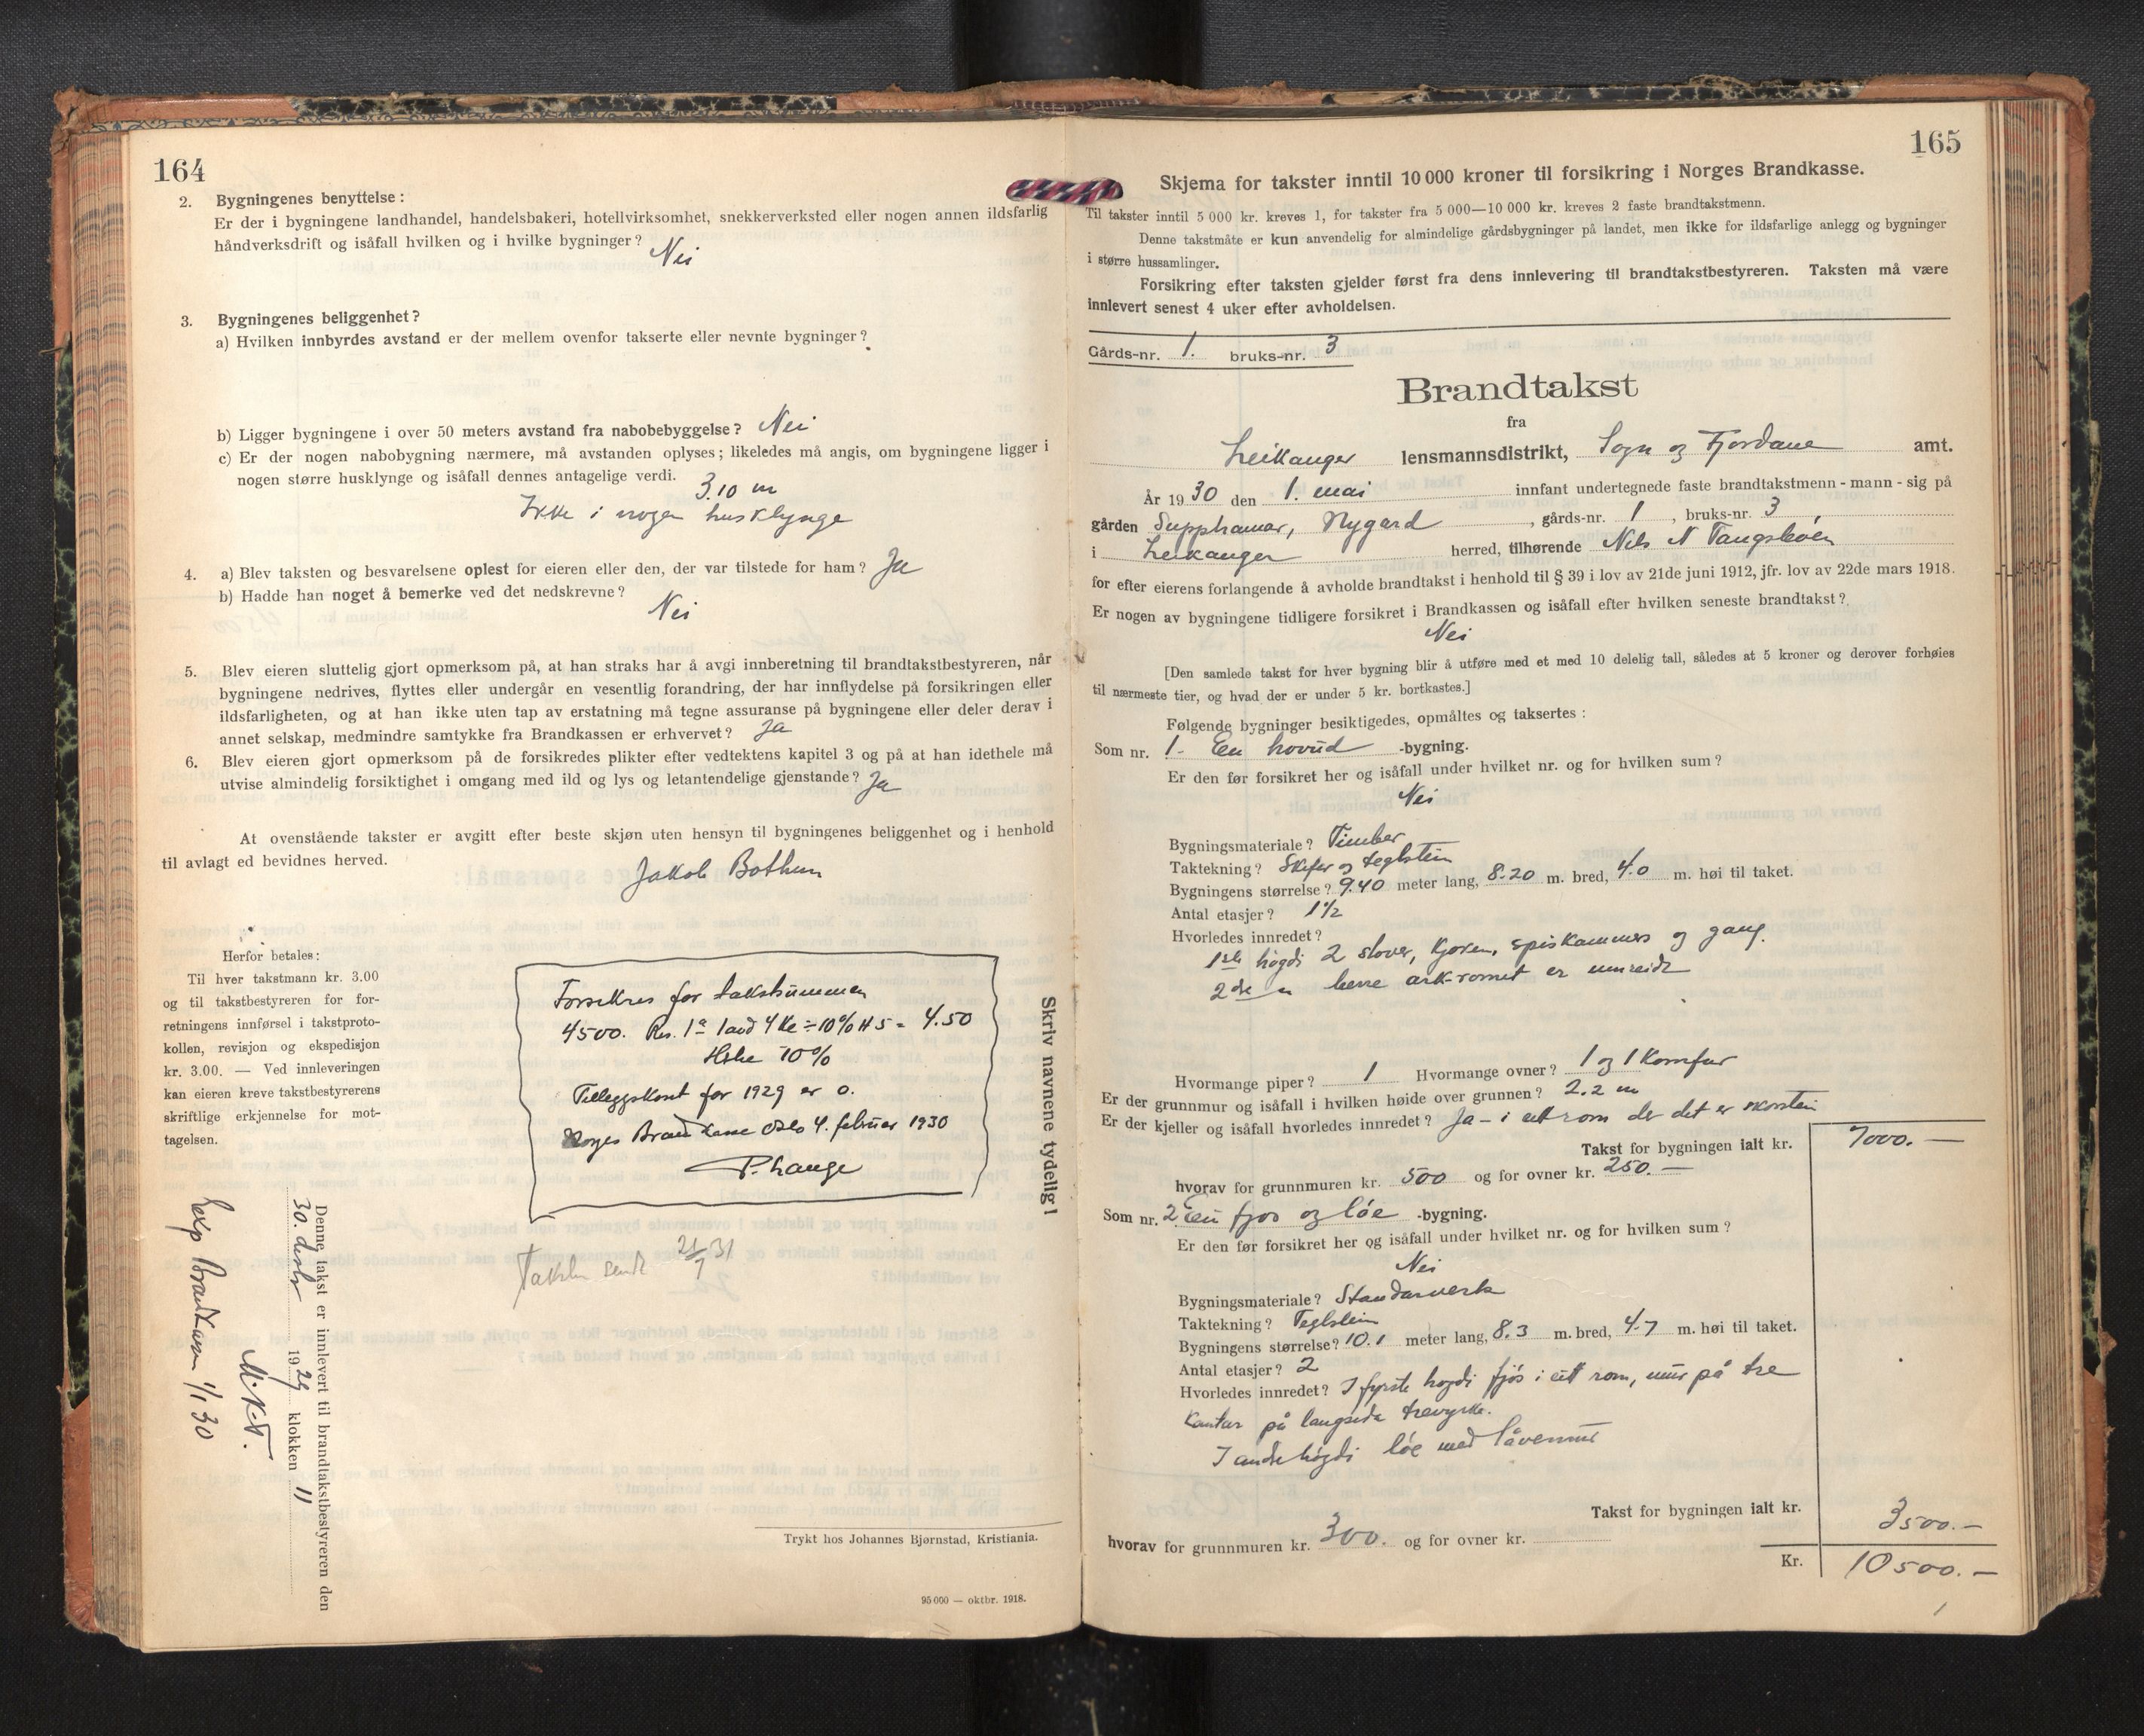 164
2. Bygningenes benyttelse :
Er der i bygningene landhandel, handelsbakeri, hotellvirksomhet, snekkerverksted eller nogen annen ildsfarlig
håndverksdrift og isåfall hvilken og i hvilke bygninger? Nei
3. Bygningenes beliggenhet?
a) Hvilken innbyrdes avstand er der mellem ovenfor takserte eller nevnte bygninger?
b) Ligger bygningene i over 50 meters avstand fra nabobebyggelse? Nei
c) Er der nogen nabobygning nærmere, må avstanden oplyses; likeledes må angis, om bygningene ligger i
nogen større husklynge og isåfall dennes antagelige verdi. 3.10 m
Ikke i nogen husklynge
4. a) Blev taksten og besvarelsene oplest for eieren eller den, der var tilstede for ham? Ja
b) Hadde han noget å bemerke ved det nedskrevne?
Nei
5. Blev eieren sluttelig gjort opmerksom på, at han straks har å avgi innberetning til brandtakstbestyreren, når
bygningene nedrives, flyttes eller undergår en vesentlig forandring, der har innflydelse på forsikringen eller
ildsfarligheten, og at han ikke uten tap av erstatning må tegne assuranse på bygningene eller deler derav i
annet selskap, medmindre samtykke fra Brandkassen er erhvervet? Ja
6. Blev eieren gjort opmerksom på de forsikredes plikter efter vedtektens kapitel 3 og på at han idethele må
utvise almindelig forsiktighet i omgang med ild og lys og letantendelige gjenstande? Ja
At ovenstående takster er avgitt efter beste skjøn uten hensyn til bygningenes beliggenhet og i henhold
til avlagt ed bevidnes herved.
Jakob Bothun
Herfor betales:
Til hver takstmann kr. 3.00
og til takstbestyreren for for-
retningens innførsel i takstproto-
kollen, revisjon og ekspedisjon
kr. 3.00. — Ved innleveringen
kan eieren kreve takstbestyrerens
skriftlige erkjennelse for mot-
tagelsen.
Forsikres for takstsummen
4500. 1a land 4 Kl ÷ 10% H 5 = 4.50
10%
Tilleggskont for 1929 er 0.
Norges Brandkasse Oslo 4. februar 1930
P. Lange
Taksten sendt 21/7 31
Skriv navnene tydelig!
Denne takst er innlevert til brandtakstbestyreren den
30. desbr 1929 klokken 11
M. K. T.
Exp Brandkassen 1/1 30
Trykt hos Johannes Bjørnstad, Kristiania.
95 000 — oktbr. 1918.
165
Skjema for takster inntil 10 000 kroner til forsikring i Norges Brandkasse.
Til takster inntil 5 000 kr. kreves 1, for takster fra 5 000—10 000 kr. kreves 2 faste brandtakstmenn.
Denne takstmåte er kun anvendelig for almindelige gårdsbygninger på landet, men ikke for ildsfarlige anlegg og bygninger
i større hussamlinger.
Forsikring efter taksten gjelder først fra dens innlevering til brandtakstbestyreren. Taksten må være
innlevert senest 4 uker efter avholdelsen.
Gårds-nr. 1. bruks-nr. 3
Brandtakst
fra
Leikanger lensmannsdistrikt, Sogn og Fjordane amt.
År 1930 den 1. mai innfant undertegnede faste brandtakstmenn - mann - sig på
gården Supphamar, Nygard, gårds-nr. 1, bruks-nr. 3,
i Leikanger herred, tilhørende Nils N Tangsbøen
for efter eierens forlangende å avholde brandtakst i henhold til § 39 i lov av 21de juni 1912, jfr. lov av 22de mars 1918.
Er nogen av bygningene tidligere forsikret i Brandkassen og isåfall efter hvilken seneste brandtakst?
Nei
[Den samlede takst for hver bygning blir å utføre med et med 10 delelig tall, således at 5 kroner og derover forhøies
til nærmeste tier, og hvad der er under 5 kr. bortkastes.]
Følgende bygninger besiktigedes, opmåltes og taksertes :
Som nr. 1. Een hovud -bygning.
Er den før forsikret her og isåfall under hvilket nr. og for hvilken sum?
Nei
Bygningsmateriale? Timber
Taktekning? Skifer og teglstein
Bygningens størrelse? 9.40 meter lang, 8.20 m. bred, 4.0 m. høi til taket.
Antal etasjer? 1 1/2
Hvorledes innredet?
1ste høgdi 2 stover, kjøken, spiskammers og gang.
2de " berre ark-romet er innreidt
Hvormange piper? 1 Hvormange ovner? 1 og 1 Komfur
Er der grunnmur og isåfall i hvilken høide over grunnen? 2.2 m
Er der kjeller og isåfall hvorledes innredet? Ja - i eit rom der det er skorstein
Takst for bygningen ialt kr. 7000. —
hvorav for grunnmuren kr. 500 og for ovner kr. 250. —
Som nr. 2 Ein fjos og løe -bygning.
Er den før forsikret her og isåfall under hvilket nr. og for hvilken sum?
Nei
Bygningsmateriale? Standarverk
Taktekning? Teglstein
Bygningens størrelse? 10.1 meter lang, 8.3 m. bred, 4.7 m. høi til taket.
Antal etasjer? 2
Hvorledes innredet? I fyrste høgdi fjós i eit rom, mur på tre
kantar på langsida trevyrke.
I andre høgdi løe med låvemur
Takst for bygningen ialt kr. 3500.—
hvorav for grunnmuren kr. 300. og for ovner kr.
Kr. 10500.—